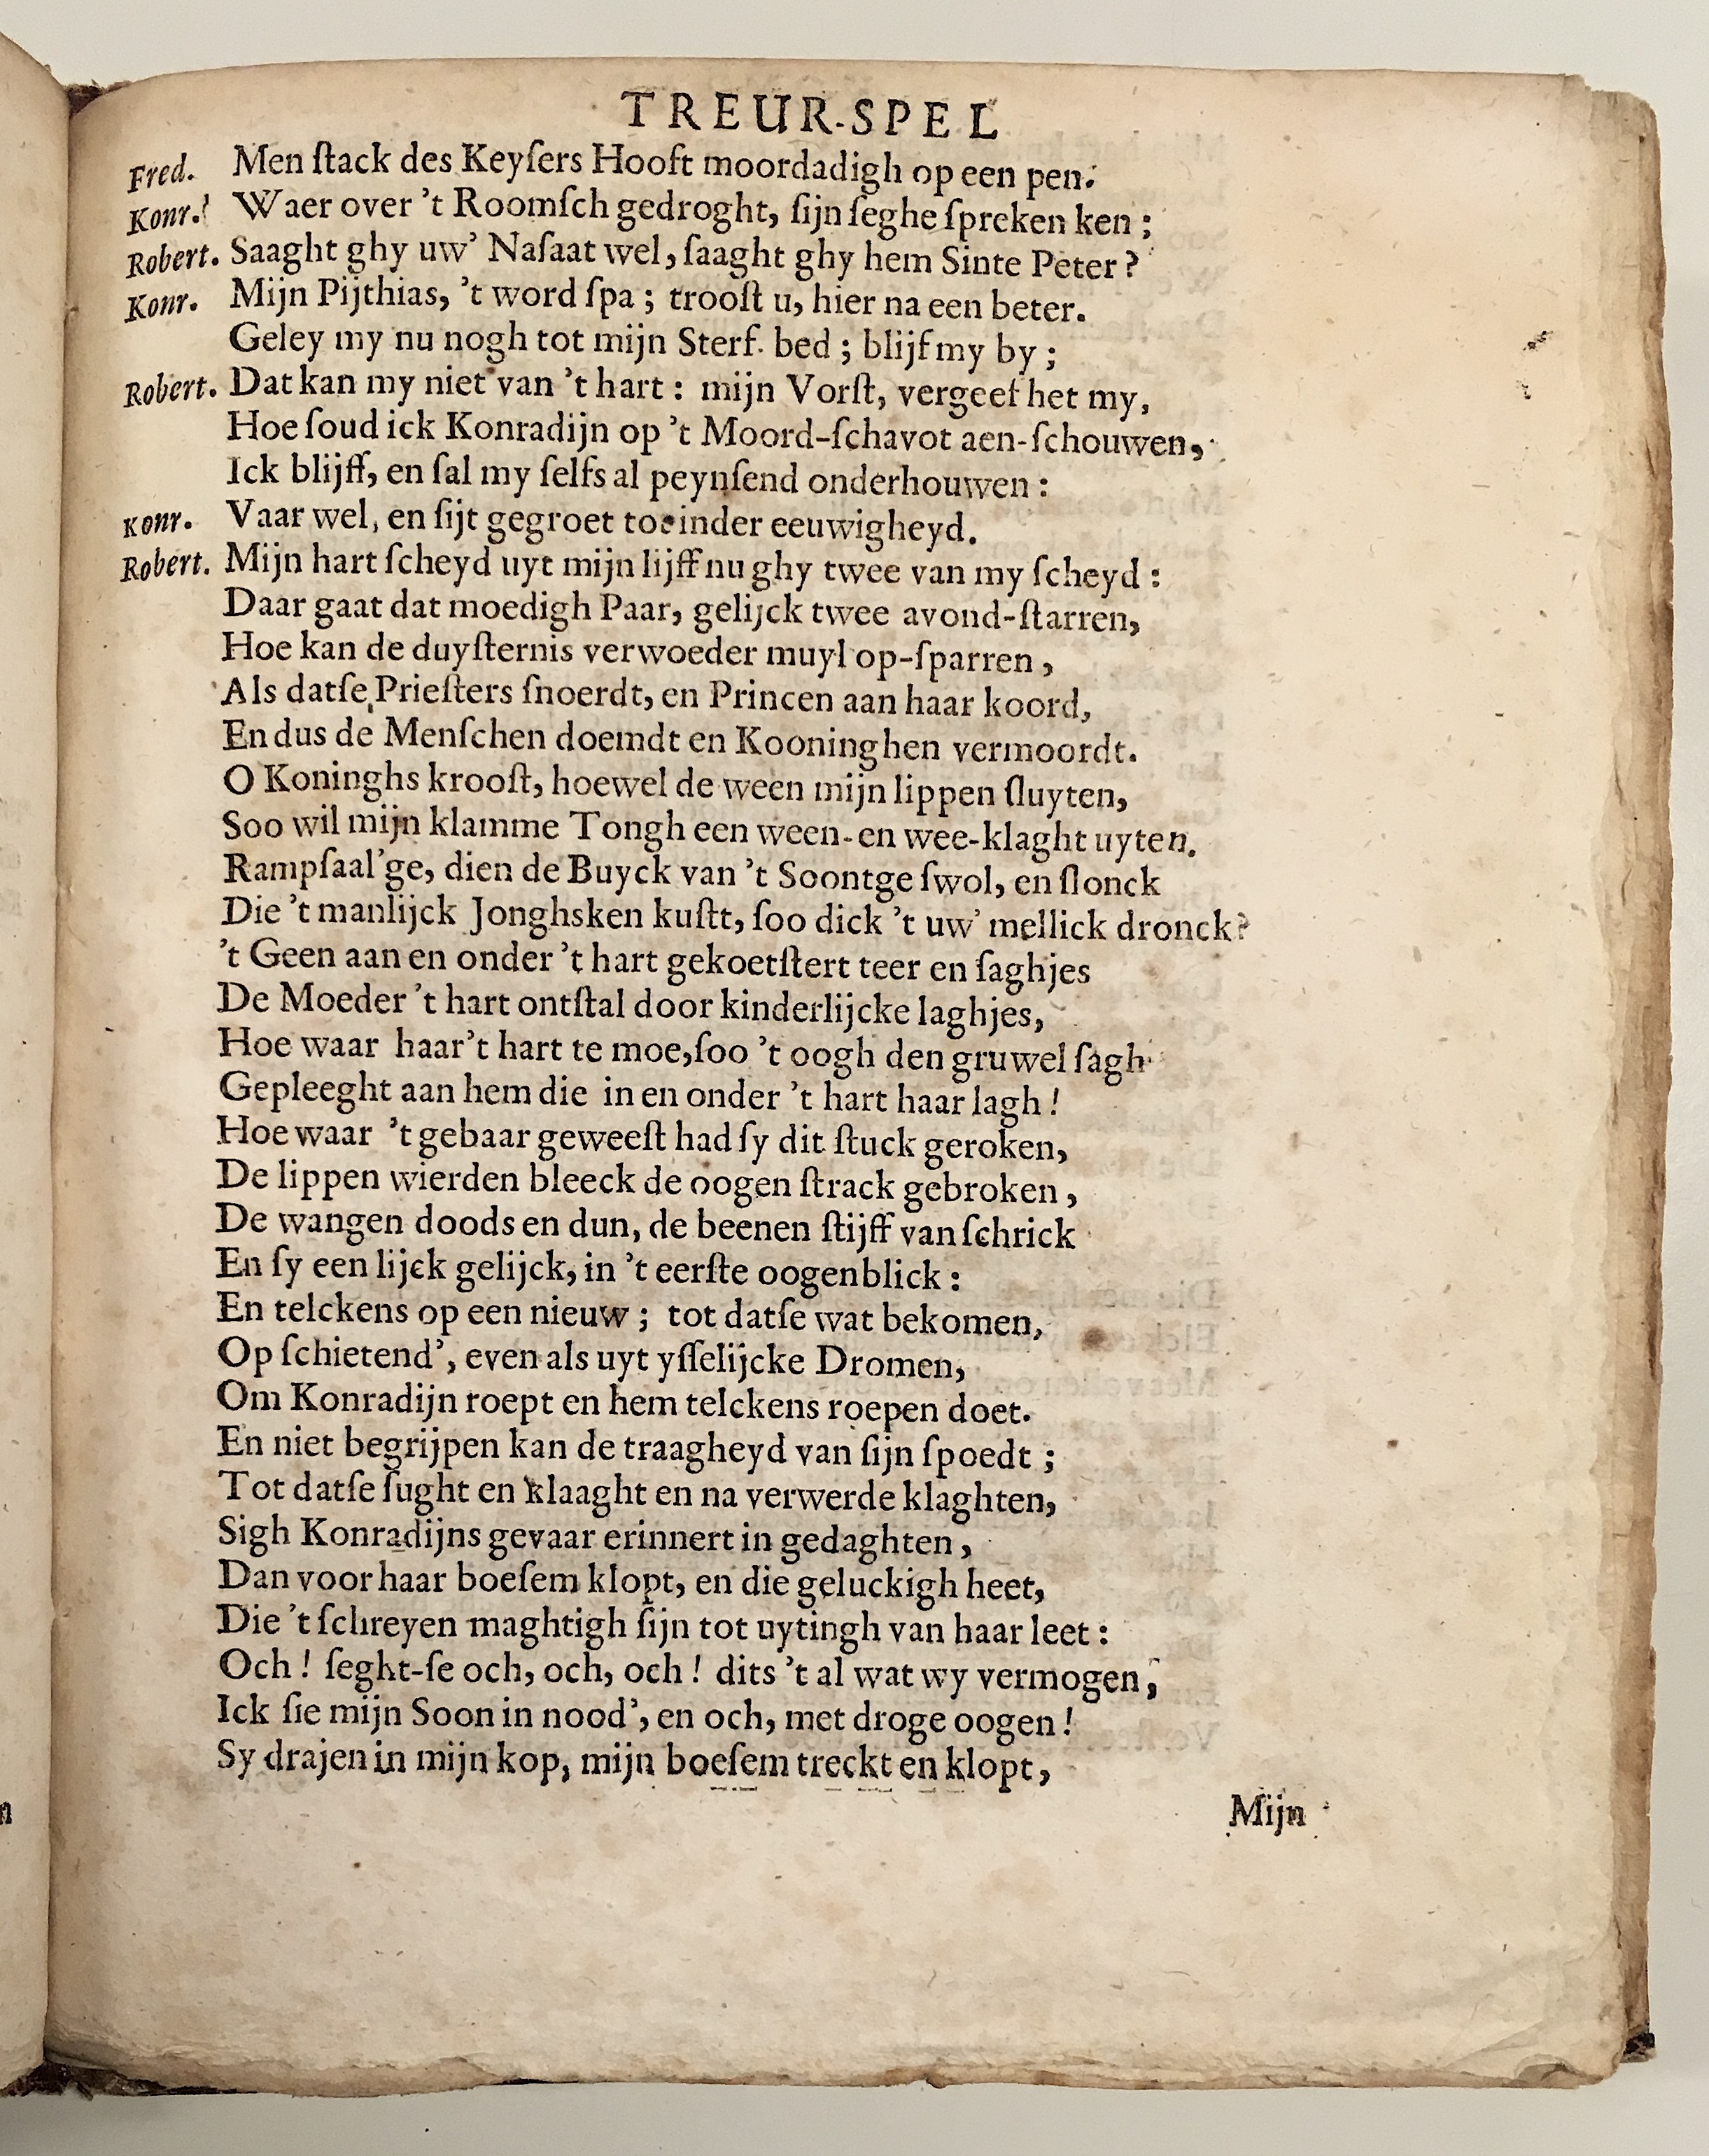 TREUR-SPEL
Fred. Men ſtack des Keyſers Hooft moordadigh op een pen.
Konr. Waer over 't Roomſch gedroght, ſijn ſeghe ſpreken ken ;
Robert. Saaght ghy uw' Naſaat wel, ſaaght ghy hem Sinte Peter ?
Konr. Mijn Pijthias, 't word ſpa ; trooſt u, hier na een beter.
Geley my nu nogh tot mijn Sterf- bed ; blijf my by ;
Robert. Dat kan my niet van 't hart : mijn Vorſt, vergeef het my,
Hoe ſoud ick Konradijn op 't Moord-ſchavot aen-ſchouwen,
Ick blijff, en ſal my ſelfs al peynſend onderhouwen :
Konr. Vaar wel, en ſijt gegroet tot inder eeuwigheyd.
Robert. Mijn hart ſcheyd uyt mijn lijff nu ghy twee van my ſcheyd :
Daar gaat dat moedigh Paar, gelijck twee avond-ſtarren,
Hoe kan de duyſternis verwoeder muyl op-ſparren ,
Als datſe Prieſters ſnoerdt, en Princen aan haar koord,
En dus de Menſchen doemdt en Kooninghen vermoordt.
O Koninghs krooſt, hoewel de ween mijn lippen ſluyten,
Soo wil mijn klamme Tongh een ween- en wee-klaght uyten.
Rampſaal'ge, dien de Buyck van 't Soontge ſwol, en ſlonck
Die 't manlijck Jonghsken kuſtt, ſoo dick 't uw' mellick dronck?
't Geen aan en onder 't hart gekoetſtert teer en ſaghjes
De Moeder 't hart ontſtal door kinderlijcke laghjes,
Hoe waar haar 't hart te moe, ſoo 't oogh den gruwel ſagh
Gepleeght aan hem die in en onder 't hart haar lagh !
Hoe waar 't gebaar geweeſt had ſy dit ſtuck geroken,
De lippen wierden bleeck de oogen ſtrack gebroken ,
De wangen doods en dun, de beenen ſtijff van ſchrick
En ſy een lijck gelijck, in 't eerſte oogenblick :
En telckens op een nieuw ; tot datſe wat bekomen,
Op ſchietend', even als uyt yſſelijcke Dromen,
Om Konradijn roept en hem telckens roepen doet.
En niet begrijpen kan de traagheyd van ſijn ſpoedt ;
Tot datſe ſught en klaaght en na verwerde klaghten,
Sigh Konradijns gevaar erinnert in gedaghten ,
Dan voor haar boeſem klopt, en die geluckigh heet,
Die 't ſchreyen maghtigh ſijn tot uytingh van haar leet :
Och ! ſeght-ſe och, och, och ! dits 't al wat wy vermogen,
Ick ſie mijn Soon in nood', en och, met droge oogen !
Sy drajen in mijn kop, mijn boeſem treckt en klopt,
Mijn